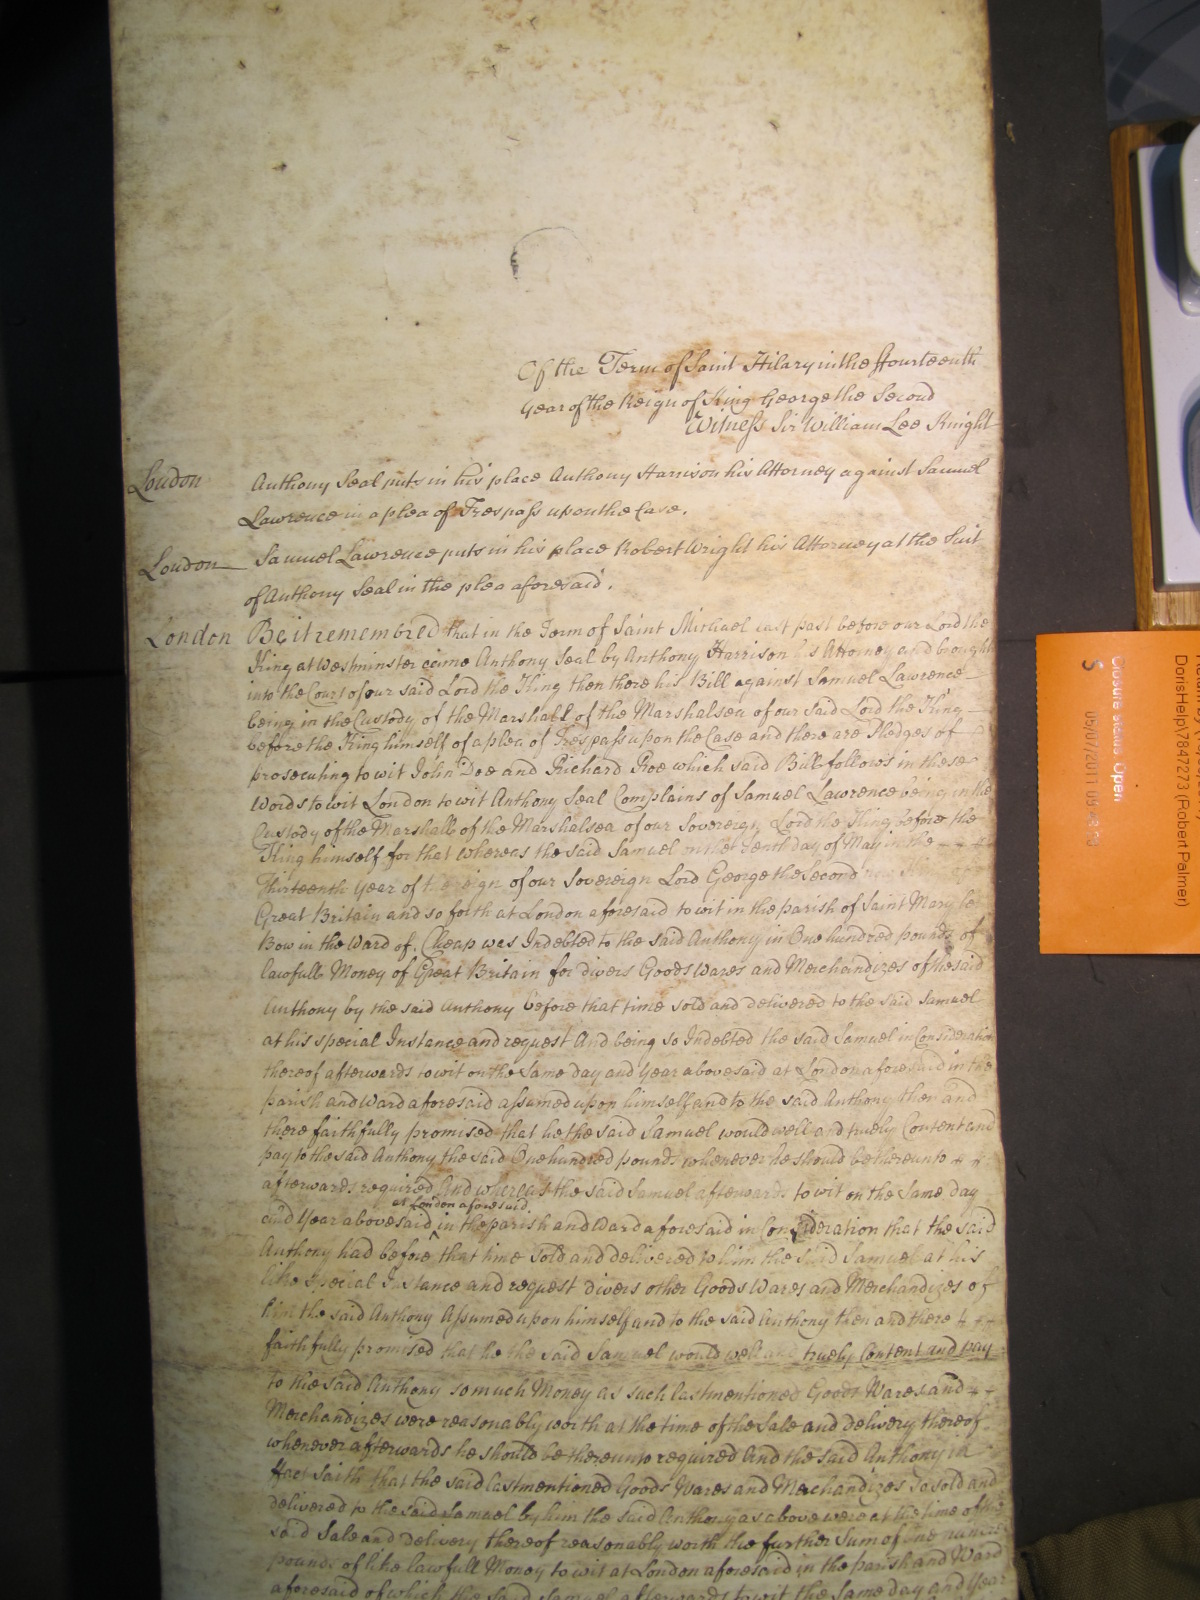 Of the Term of Saint Hilary in the ffourteenth
Year of the Reign of King George the Second
Witness Sir William Lee Knight
London Anthony Seal puts in his place Anthony Harrison his Attorney against Samuel
Lawrence in a plea of Trespass upon the Case.
London Samuel Lawrence puts in his place Robert Wright his Attorney at the Suit
of Anthony Seal in the plea aforesaid.
London Be it remembred that in the Term of Saint Michael last past before our Lord the
King at Westminster came Anthony Seal by Anthony Harrison his Attorney and brought
into the Court of our said Lord the King then there his Bill against Samuel Lawrence
being in the Custody of the Marshall of the Marshalsea of our said Lord the King
before the King himself of a plea of Trespass upon the Case and there are Pledges of
prosecuting to wit John Doe and Richard Roe which said Bill follows in these
words to wit London to wit Anthony Seal Complains of Samuel Lawrence being in the
Custody of the Marshall of the Marshalsea of our Sovereign Lord the King before the
King himself for that whereas the said Samuel on the Tenth day of May in the
Thirteenth Year of the Reign of our Sovereign Lord George the Second now
Great Britain and so forth at London aforesaid to wit in the parish of Saint Mary le
Bow in the Ward of Cheap was Indebted to the said Anthony in One hundred pounds of
lawfull Money of Great Britain for divers Goods Wares and Merchandizes of the said
Anthony by the said Anthony before that time sold and delivered to the said Samuel
at his special Instance and request And being so Indebted the said Samuel in Consideration
thereof afterwards to wit on the same day and Year abovesaid at London aforesaid in the
parish and Ward aforesaid assumed upon himself and to the said Anthony then and
there faithfully promised that he the said Samuel would well and truely Content and
pay to the said Anthony the said One hundred pounds whenever he should be thereunto
afterwards required And whereas the said Samuel afterwards to wit on the same day
at London aforesaid
and Year abovesaid in the parish and Ward aforesaid in Consideration that the said
Anthony had before that time sold and delivered to him the said Samuel at his
like special Instance and request divers other Goods Wares and Merchandizes of
him the said Anthony Assumed upon himself and to the said Anthony then and there
faithfully promised that he the said Samuel would well and truely Content and pay
to the said Anthony so much Money as such lastmentioned Goods Wares and
Merchandizes were reasonably worth at the time of the Sale and delivery thereof
whenever afterwards he should be thereunto required And the said Anthony in
ffact saith that the said lastmentioned Goods Wares and Merchandizes so sold and
delivered to the said Samuel by him the said Anthony as above were at the time of the
said Sale and delivery thereof reasonably worth the further Sum of One
pounds of like lawfull Money to wit at London aforesaid in the parish and Ward
aforesaid of which the said Samuel afterwards to wit the same day and Year
Closure status Open
05/07/2011 09:
S
DorisHelp\7847273 (Robert Palmer)